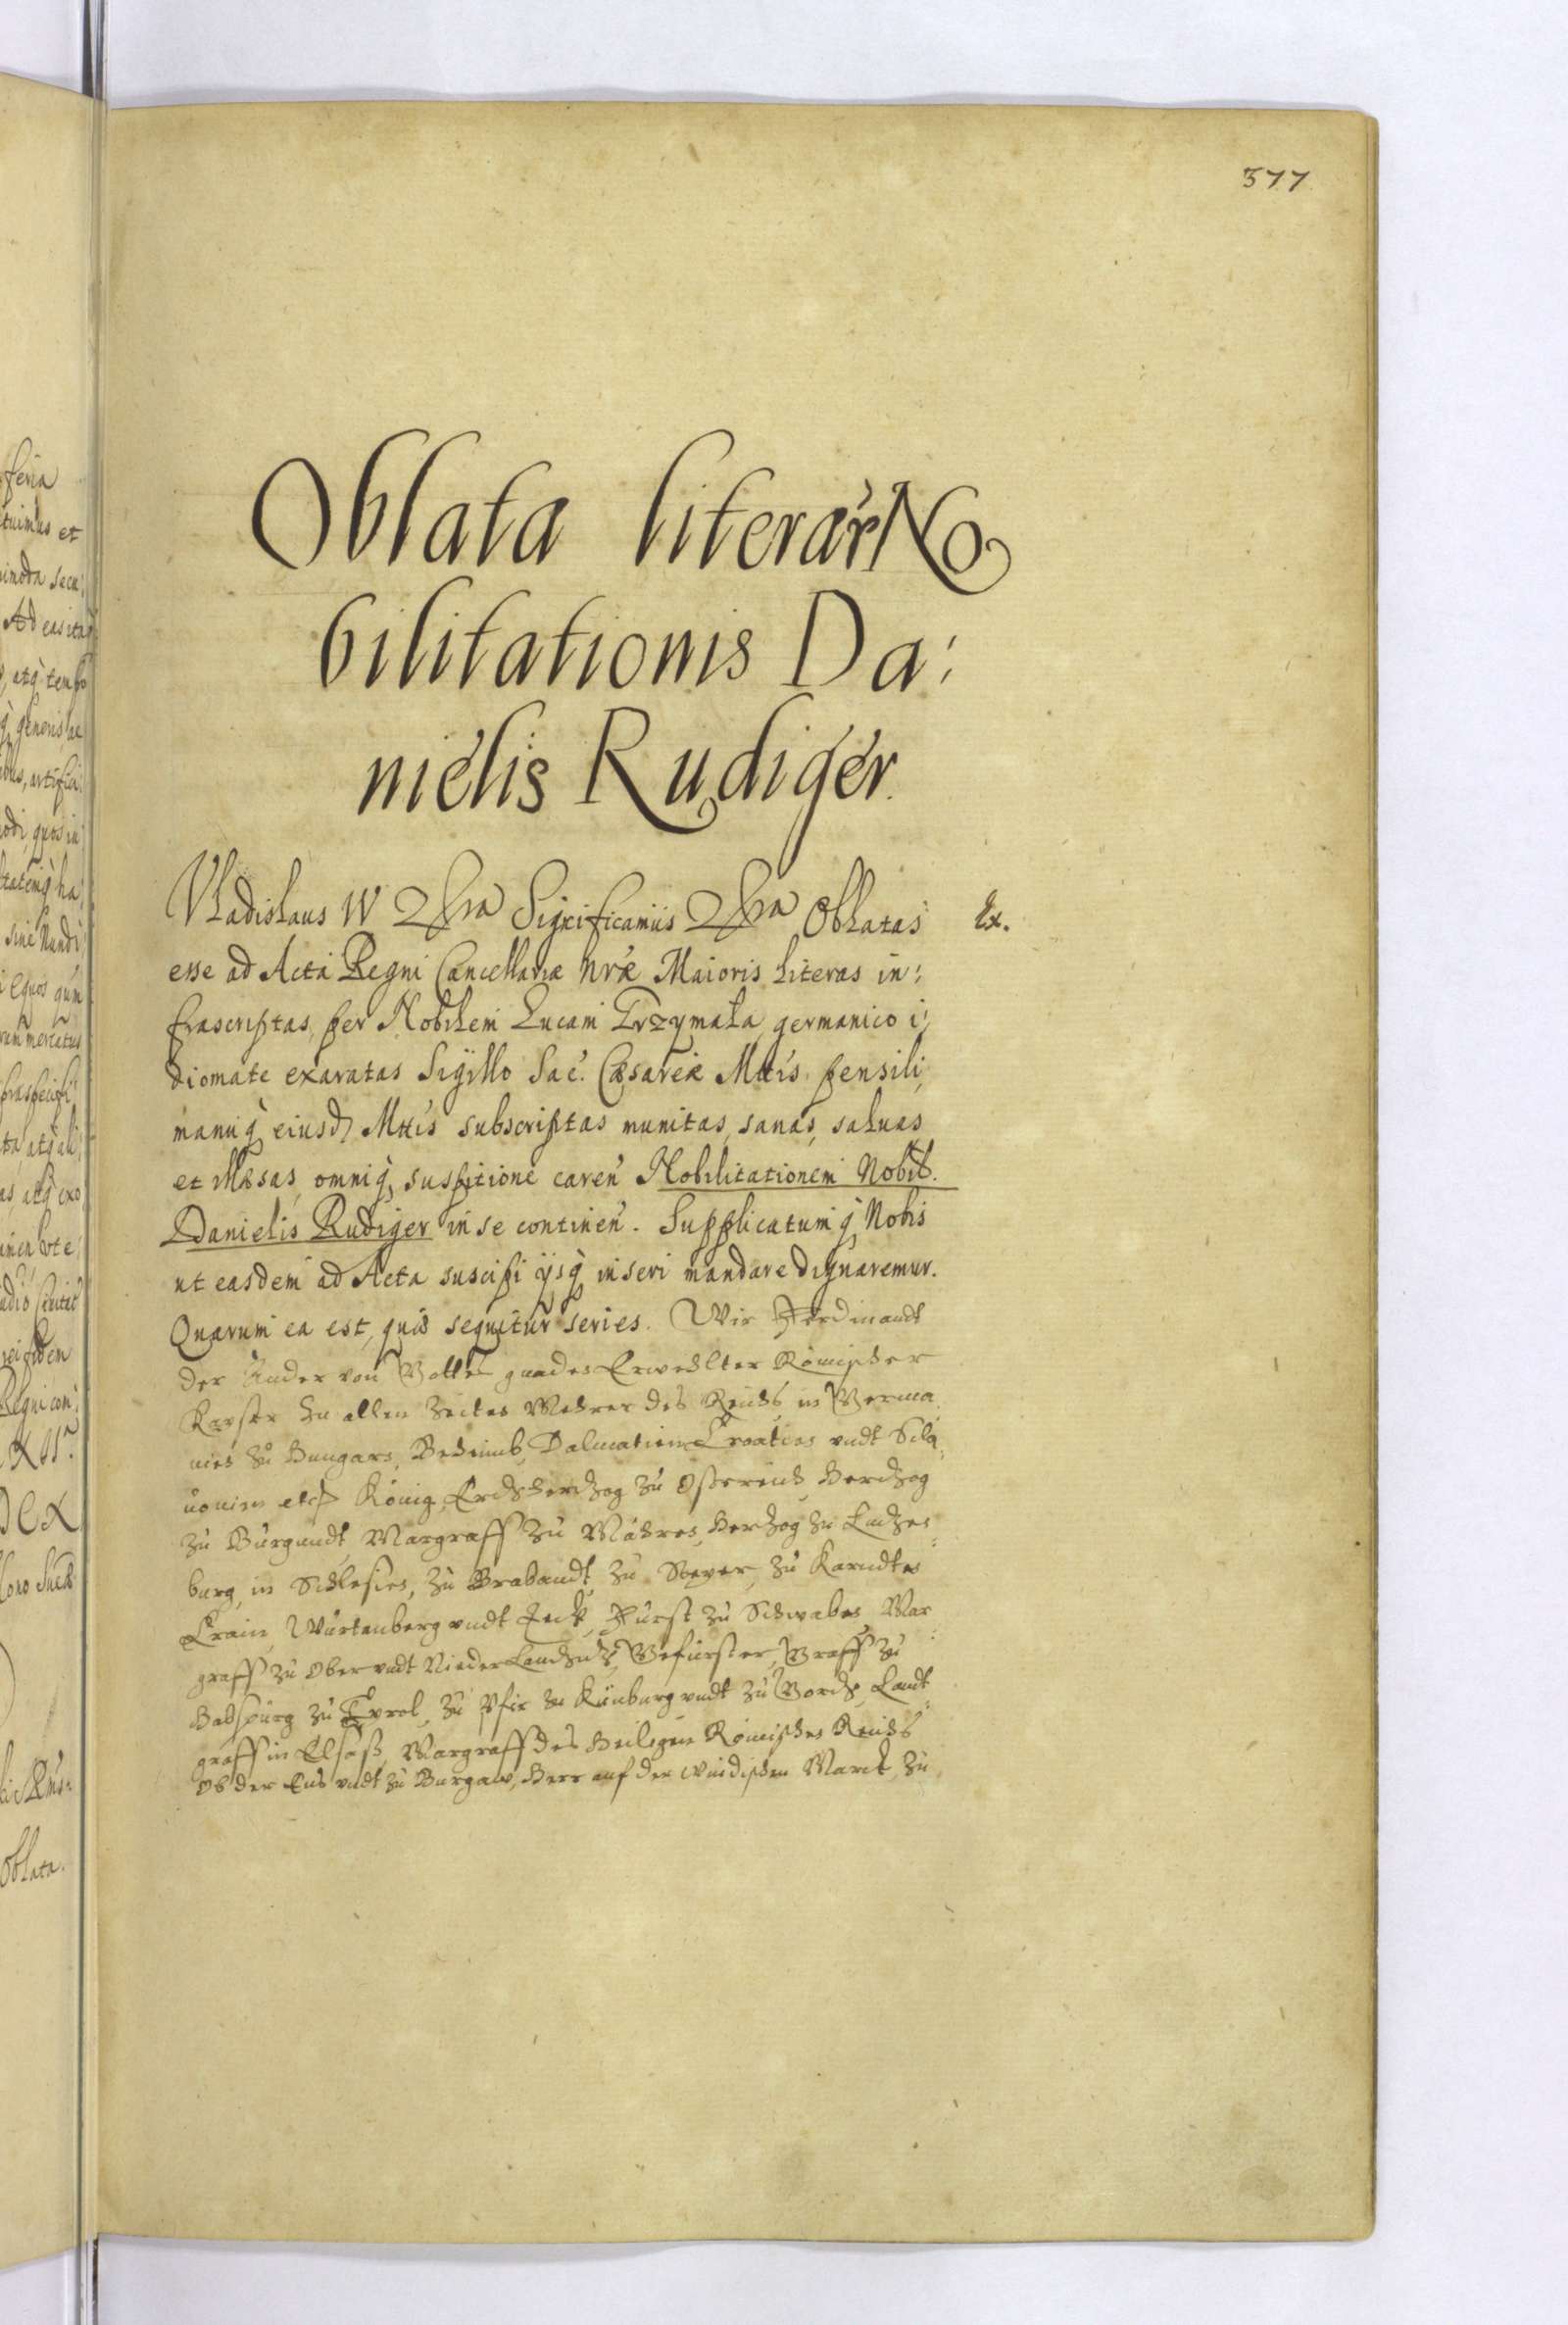 577
Oblata literar No
bilitationis Da:
nielis Rudiger.
Vladislaus IV Significamus Oblatas Ex.
esse ad Acta Regni Cancellariæ nræ Maioris literas in:
frascriptas, per Nobilem Lucam Trzymała, germanico i:
diomate exaratas Sigillo Sac. Cæsareæ Mttis pensili,
manuq eiusd Mttis subscriptas munitas, sanas, saluas
et illæsas, omniq suspitione caren Nobilitationem Nobil.
Danielis Rudiger in se continen. Supplicatumq Nobis
ut easdem ad Acta suscipi ÿsq inseri mandare dignaremur.
Quarum ea est, quæ sequitur series. Wir Ferdinandt
der Ander von Gottes gnaden Erwehlter Römischer
Kayser zu allen Zeiten Mehrer des Reichs, in Germa
nien zu Hungarn, Beheimb, Dalmatien Croatien vndt Scla
uonien etc König, Erzherdzog zu Osterreich, Herdzog
zu Burgundt, Margraff zu Mähren, Herzog zu Luczen
burg, in Schlesien, zu Brabandt, zu Steyer, zu Karndten
Crain, Würtenberg vndt Teck, Fürst zu Schwaben Mar
graff zu Ober vndt Nieder Laudznitz, Gefürster, Graff zu
Habspurg zu Tyrol, zu Pfir zu Künburg vndt zu Gordz, Landt
graff in Elsass, Margraff des Heiligen Römischen Reichs
Ob der Ens vndt zu Burgaw, Herr auf der Windischen Marck, zu